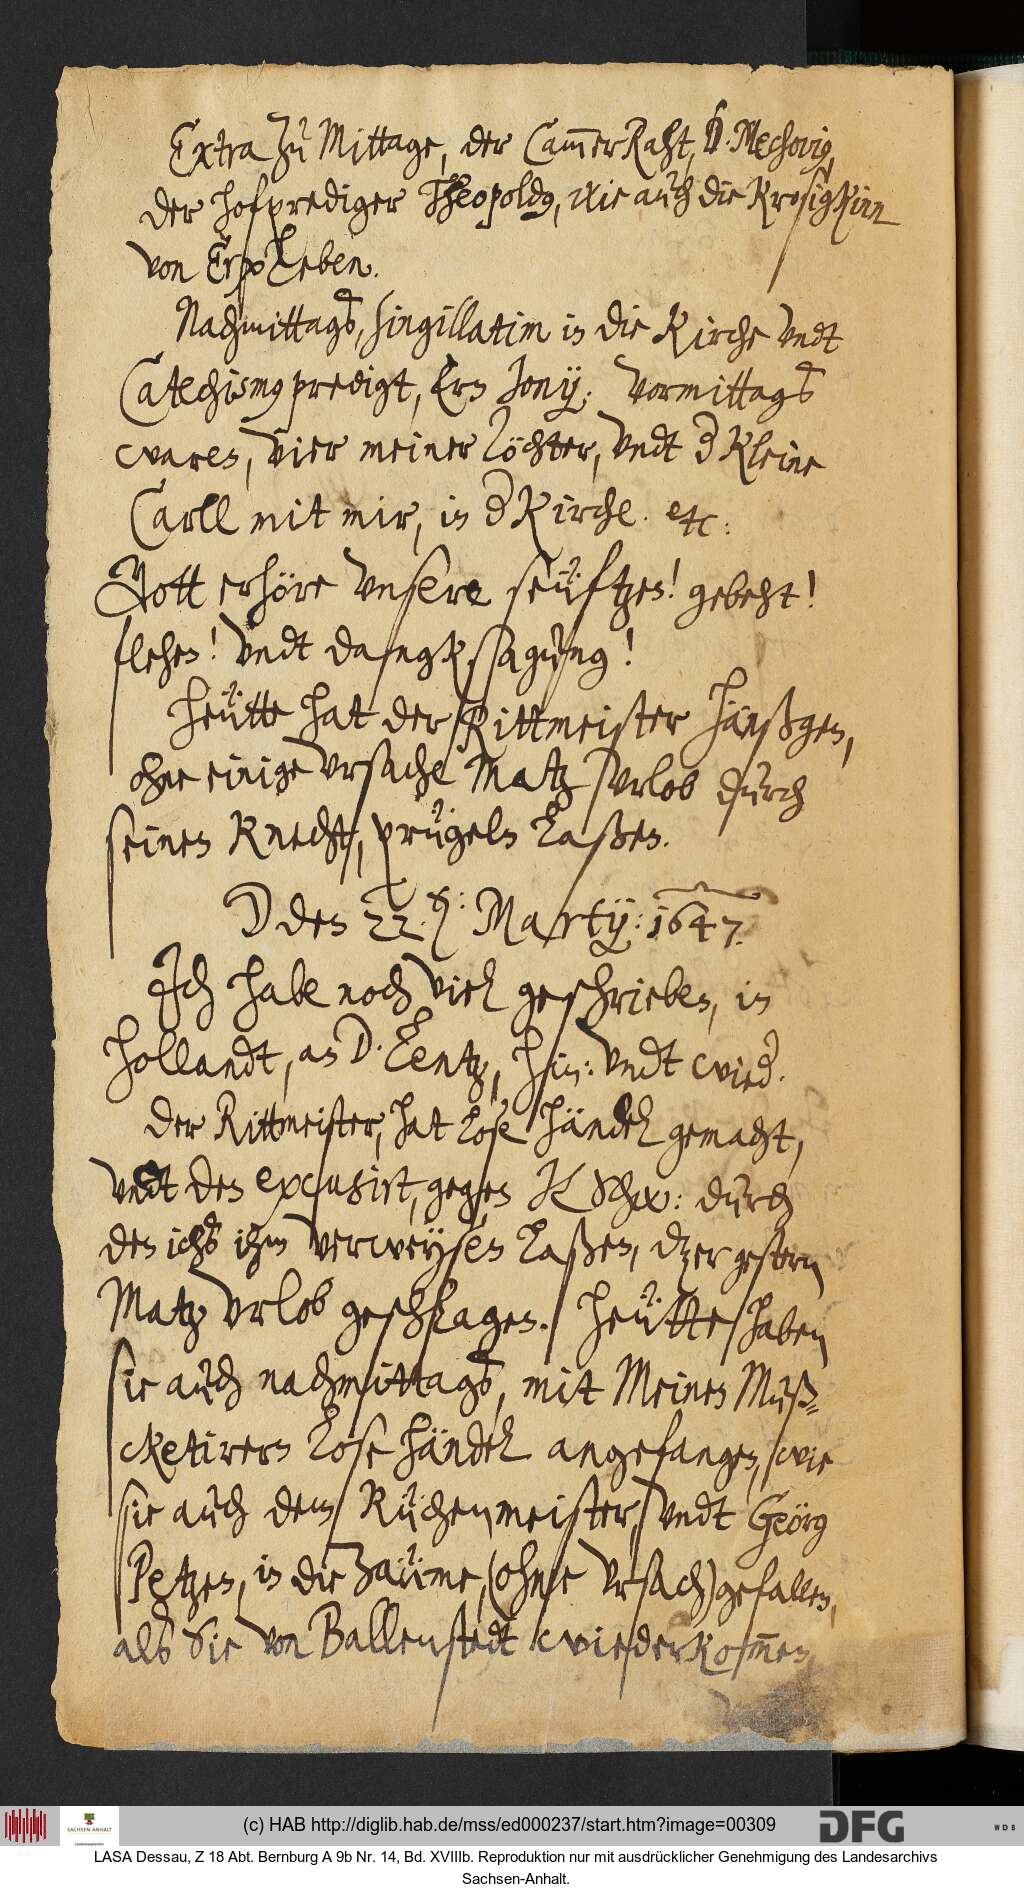 Extra zu Mittage, der CammerRaht, D. Mechovig,
der hofprediger Theopoldg, wie auch die Krosigkinn
von Erxleben.
Nachmittags, singillatim in die Kirche vndt
Catechismg predigt, Ern Jonij: Vormittags
waren, vier meiner Töchter, vndt d Kleine
Carll mit mir, in d Kirche. etc:
Gott erhöre vnsere seüftzen! gebeht!
flehen! vndt dangksagung!
Heütte hat der Rittmeister Hänßgen,
ohne einige vrsache Matz Vrlob durch
seinen Knecht, prügeln laßen.
D den 22. Martij: 1647.
Ich habe noch viel geschrieben, in
Hollandt, an D. Lentz, hin: vndt wied.
Der Rittmeister, hat lose händel gemacht,
vndt den excusirt, gegen K Schw: durch
den ichs ihm verweysen laßen, dz er gestern
Matz Vrlob geschlagen. Heütte haben
sie auch nachmittags, mit Meinen Muß=
cketirern lose händel angefangen, wie
sie auch dem Küchenmeister, vndt Geörg
Petzen, in die Zaüme, (ohne vrsach) gefallen,
als Sie von Ballenstedt wiederkommen,
(c) HAB http://diglib.hab.de/mss/ed000237/start.htm?image=00309
SACHSEN-ANHALT
DFG
W D B
LASA Dessau, Z 18 Abt. Bernburg A 9b Nr. 14, Bd. XVIIIb. Reproduktion nur mit ausdrücklicher Genehmigung des Landesarchivs
Sachsen-Anhalt.